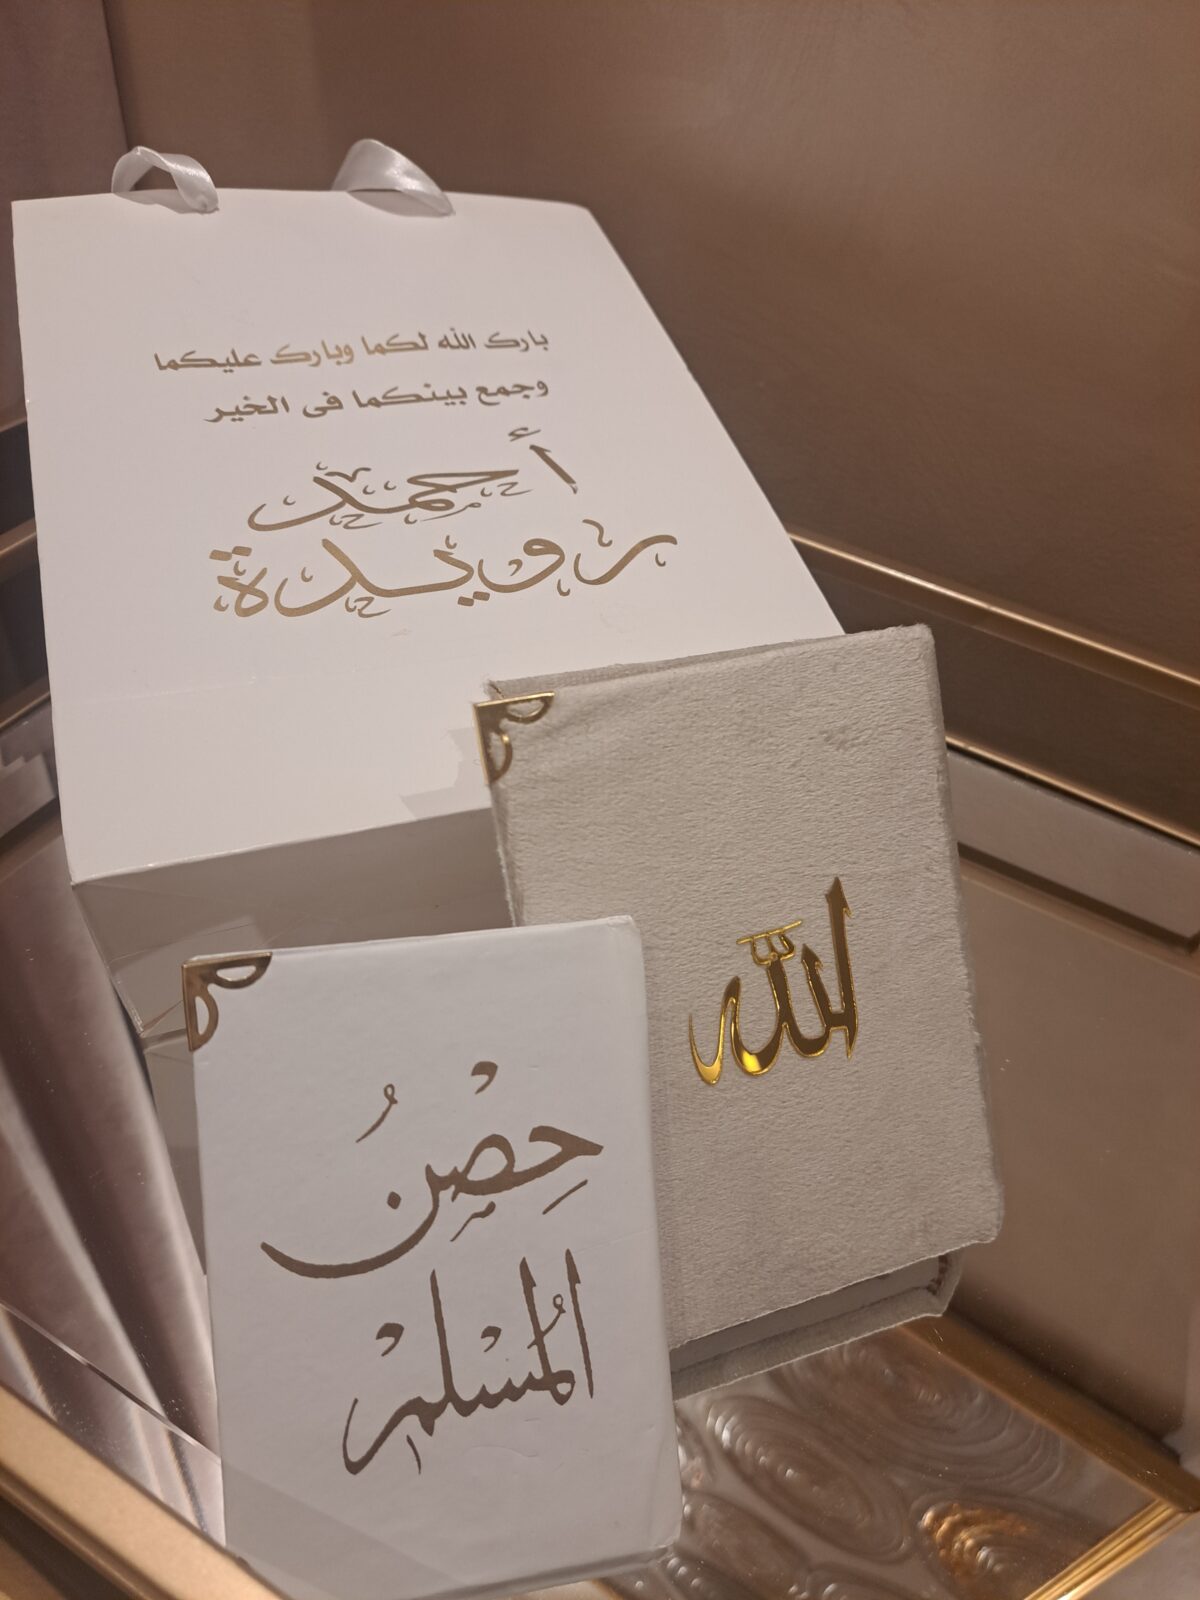 بارك الله لكما وبارك عليكما
وجمع بينكما فى الخير
أحمد
رويدة
الله
حِصْنُ
المُسْلِمْ